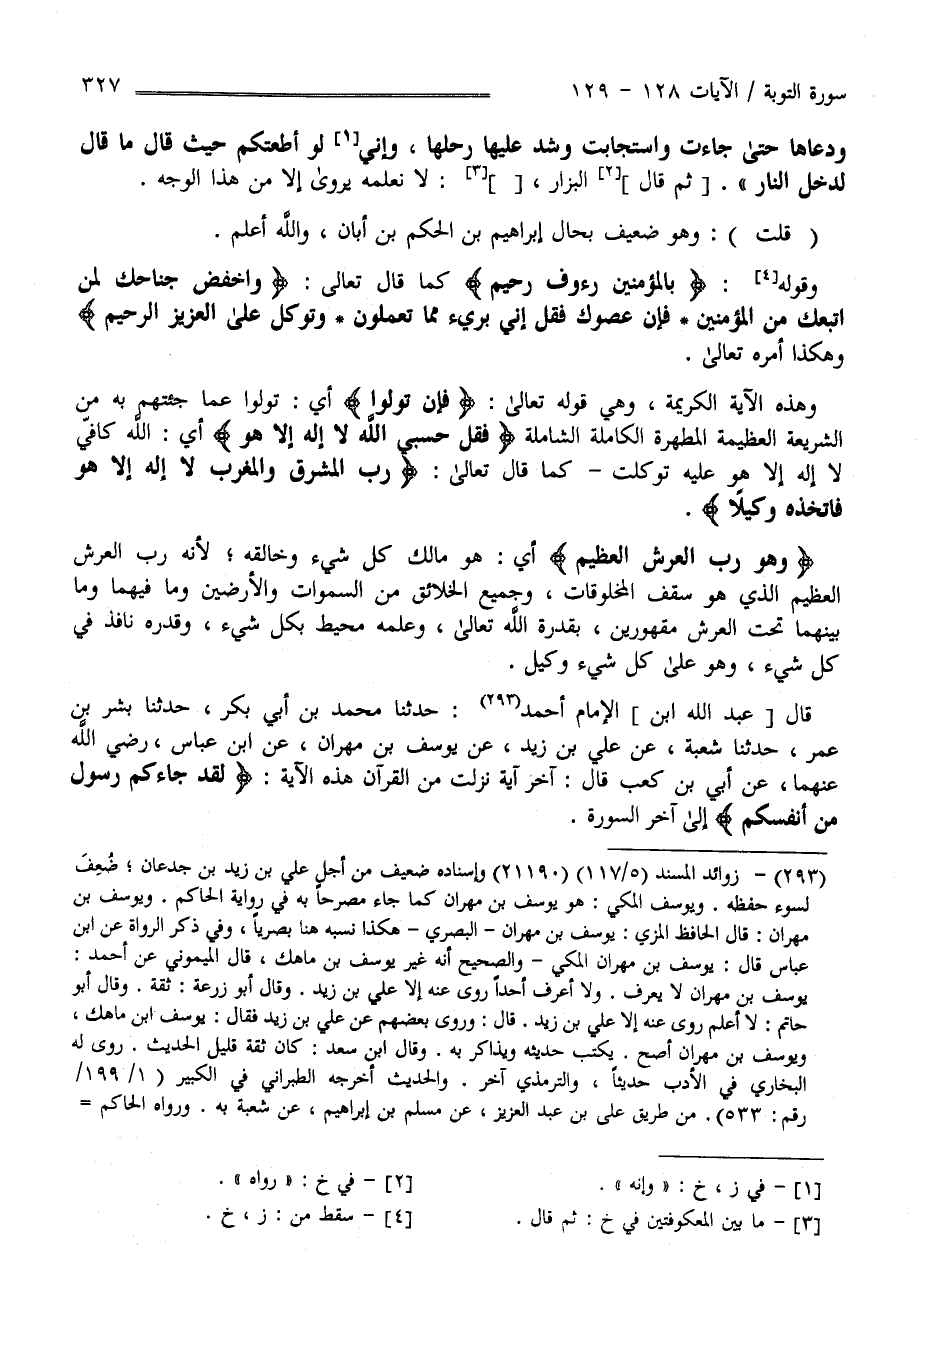 سورة التوبة / الآيات ١٢٨ – ١٢٩ ٣٢٧
ودعاها حتىٰ جاءت واستجابت وشد عليها رحلها ، وإني[١] لو أطعتكم حيث قال ما قال
لدخل النار » . [ ثم قال ][٢] البزار ، [ ][٣] : لا نعلمه يروىٰ إلا من هذا الوجه .
( قلت ) : وهو ضعيف بحال إبراهيم بن الحكم بن أبان ، واللَّه أعلم .
وقوله[٤] : ﴿ بالمؤمنين رءوف رحيم ﴾ كما قال تعالى : ﴿ واخفض جناحك لمن
اتبعك من المؤمنين * فإن عصوك فقل إني بريء مما تعملون * وتوكل علىٰ العزيز الرحيم ﴾
وهكذا أمره تعالىٰ .
وهذه الآية الكريمة ، وهي قوله تعالىٰ : ﴿ فإن تولوا ﴾ أي : تولوا عما جئتهم به من
الشريعة العظيمة المطهرة الكاملة الشاملة ﴿ فقل حسبي اللَّه لا إله إلا هو ﴾ أي : اللَّه كافيّ
لا إله إلا هو عليه توكلت – كما قال تعالىٰ : ﴿ رب المشرق والمغرب لا إله إلا هو
فاتخذه وكيلًا ﴾ .
﴿ وهو رب العرش العظيم ﴾ أي : هو مالك كل شيء وخالقه ؛ لأنه رب العرش
العظيم الذي هو سقف المخلوقات ، وجميع الخلائق من السموات والأرضين وما فيهما وما
بينهما تحت العرش مقهورين ، بقدرة اللَّه تعالىٰ ، وعلمه محيط بكل شيء ، وقدره نافذ في
كل شيء ، وهو علىٰ كل شيء وكيل .
قال [ عبد الله ابن ] الإمام أحمد(٢٩٣) : حدثنا محمد بن أبي بكر ، حدثنا بشر بن
عمر ، حدثنا شعبة ، عن علي بن زيد ، عن يوسف بن مهران ، عن ابن عباس ، رضي اللَّه
عنهما ، عن أبي بن كعب قال : آخر آية نزلت من القرآن هذه الآية : ﴿ لقد جاءكم رسول
من أنفسكم ﴾ إلىٰ آخر السورة .
(٢٩٣) – زوائد المسند (١١٧/٥) (٢١١٩٠) وإسناده ضعيف من أجل علي بن زيد بن جدعان ؛ ضُعِفَ
لسوء حفظه . ويوسف المكي : هو يوسف بن مهران كما جاء مصرحاً به في رواية الحاكم . ويوسف بن
مهران : قال الحافظ المزي : يوسف بن مهران – البصري – هكذا نسبه هنا بصرياً ، وفي ذكر الرواة عن ابن
عباس قال : يوسف بن مهران المكي – والصحيح أنه غير يوسف بن ماهك ، قال الميموني عن أحمد :
يوسف بن مهران لا يعرف . ولا أعرف أحداً روى عنه إلا علي بن زيد . وقال أبو زرعة : ثقة . وقال أبو
حاتم : لا أعلم روى عنه إلا علي بن زيد . قال : وروى بعضهم عن علي بن زيد فقال : يوسف ابن ماهك ،
ويوسف بن مهران أصح . يكتب حديثه ويذاكر به . وقال ابن سعد : كان ثقة قليل الحديث . روى له
البخاري في الأدب حديثاً ، والترمذي آخر . والحديث أخرجه الطبراني في الكبير ( ١/ ١٩٩/
رقم : ٥٣٣). من طريق على بن عبد العزيز ، عن مسلم بن إبراهيم ، عن شعبة به . ورواه الحاكم =
[١] – في ز ، خ : « وإنه » . [٢] – في خ : « رواه » .
[٣] – ما بين المعكوفتين في خ : ثم قال . [٤] – سقط من : ز ، خ .